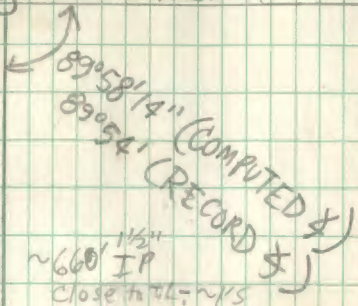 89°58'14" (COMPUTED ∡)
89°54' (RECORD ∡)
~660' 1½" IP
close to